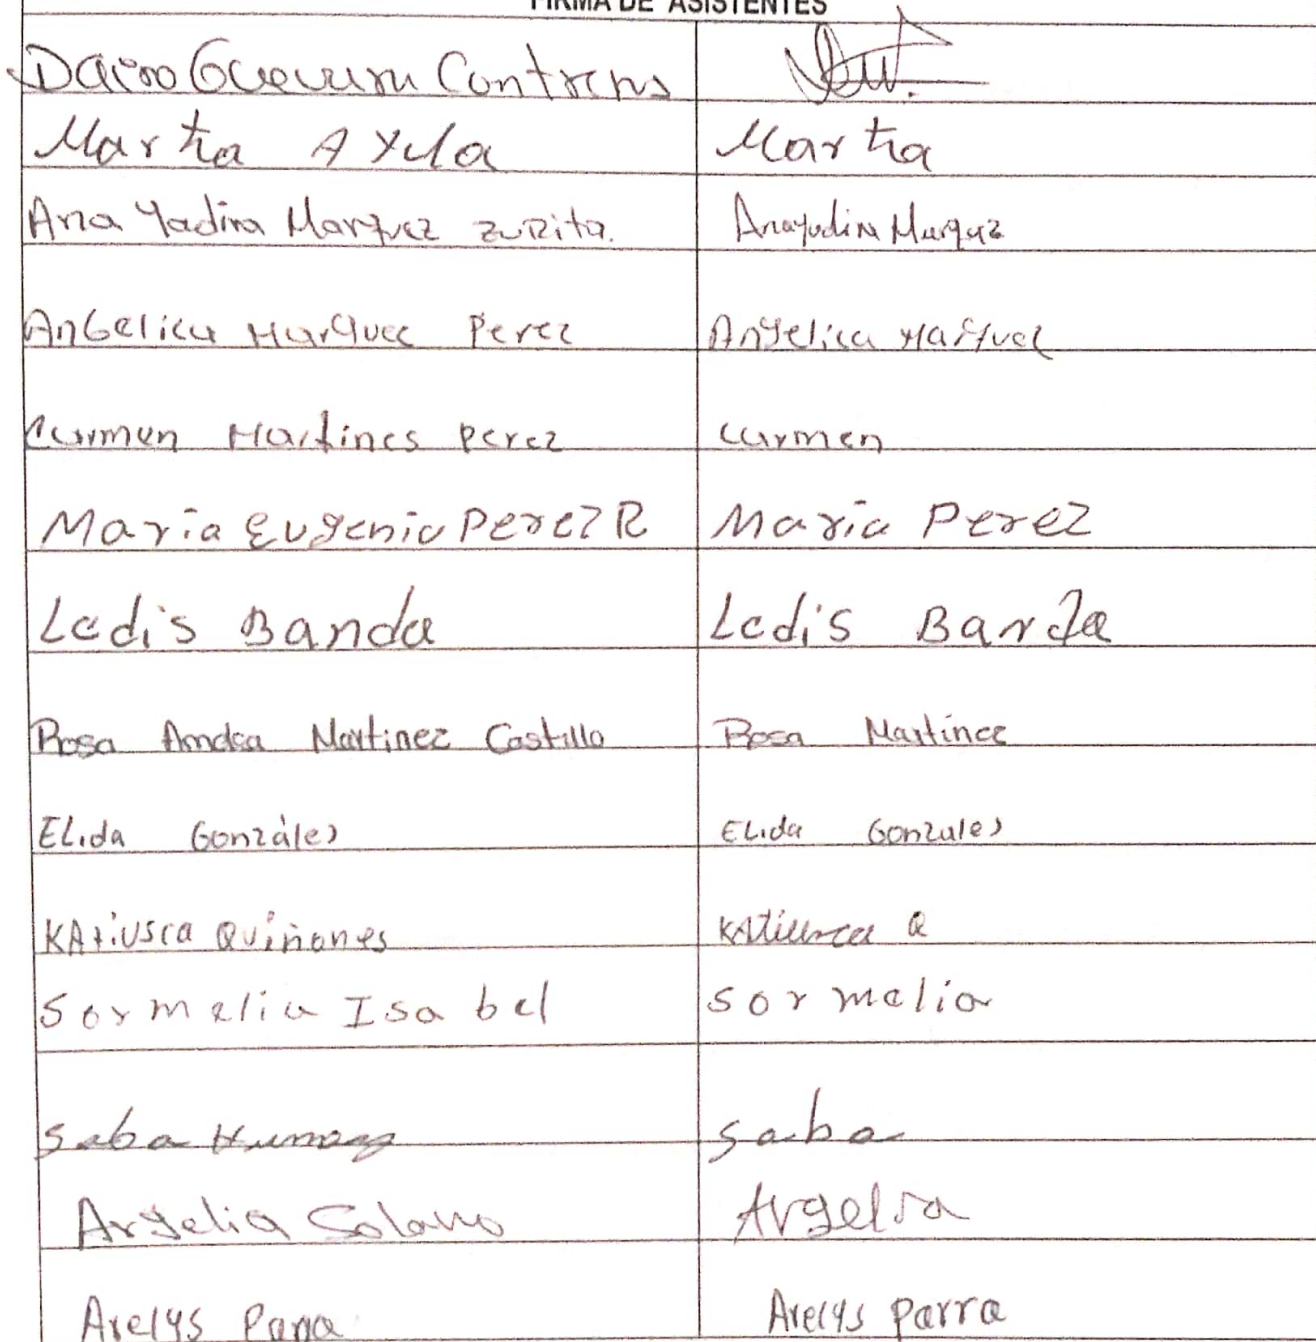 FIRMA DE ASISTENTES
Dairo Guevara Contreras
Martha Ayala Martha
Ana Yadira Marquez Zurita. Anayadira Marquez
Angelica Marquez Perez Angelica Marquez
Carmen Martines Perez Carmen
Maria Eugenia Perez R Maria Perez
Ledis Banda Ledis Banda
Rosa Amdea Martinez Castillo Rosa Martinez
Elida Gonzáles Elida Gonzales
Katiusca Quiñones Katiusca Q
Sormelia Isabel Sormelia
Saba Saba
Argelia Solano Argelia
Arelys Parra Arelys Parra